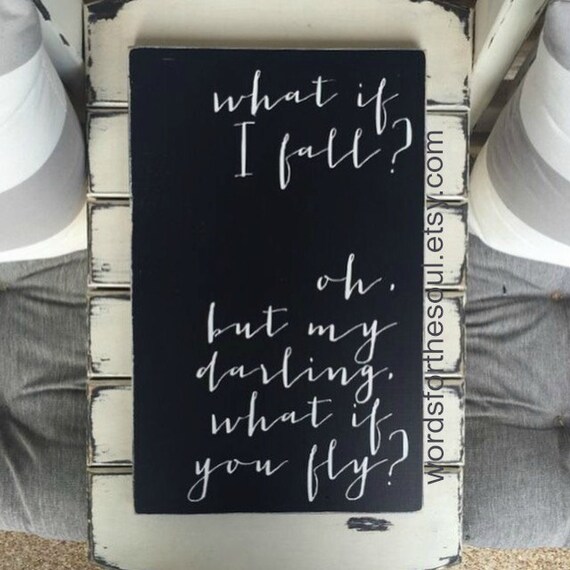 what if
I fall?
oh,
but my
darling,
what if
you fly?
wordsforthesoul.etsy.com